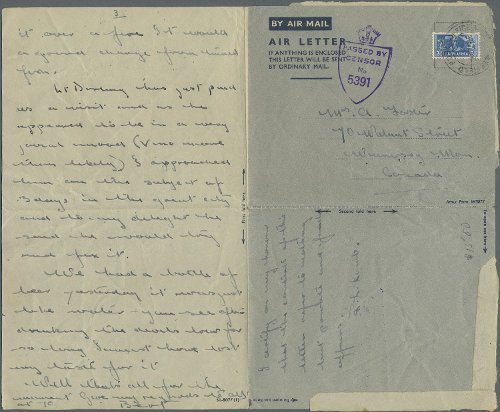 3
it over a fire It would
a good change from tinned
food.
Lt Dowling has just paid
us a visit and as he
appeared to be in a very
jovial mood (Vino more
than likely) I approached
him on the subject of
3 days in the great city
and to my delight he
said he would try
and fix it.
We had a bottle of
beer yesterday it was just
like water - you see after
drinking the
so long I must have lost
my taste for it
Well thats all for the
moment Give my regards to all
at
Bert
51-8077(1)
BY AIR MAIL
AIR LETTER
IF ANYTHING IS ENCLOSED
THIS LETTER WILL BE SENT
BY ORDINARY MAIL.
PASSED BY
CENSOR
No
5391
Mrs. A. Foster
70 Walnut Street
Winnipeg Man.
Canada
Second fold here
First fold here
To open cut here
I certify on my honour
that the contents of this
letter refer to nothing
but private and family
affairs.